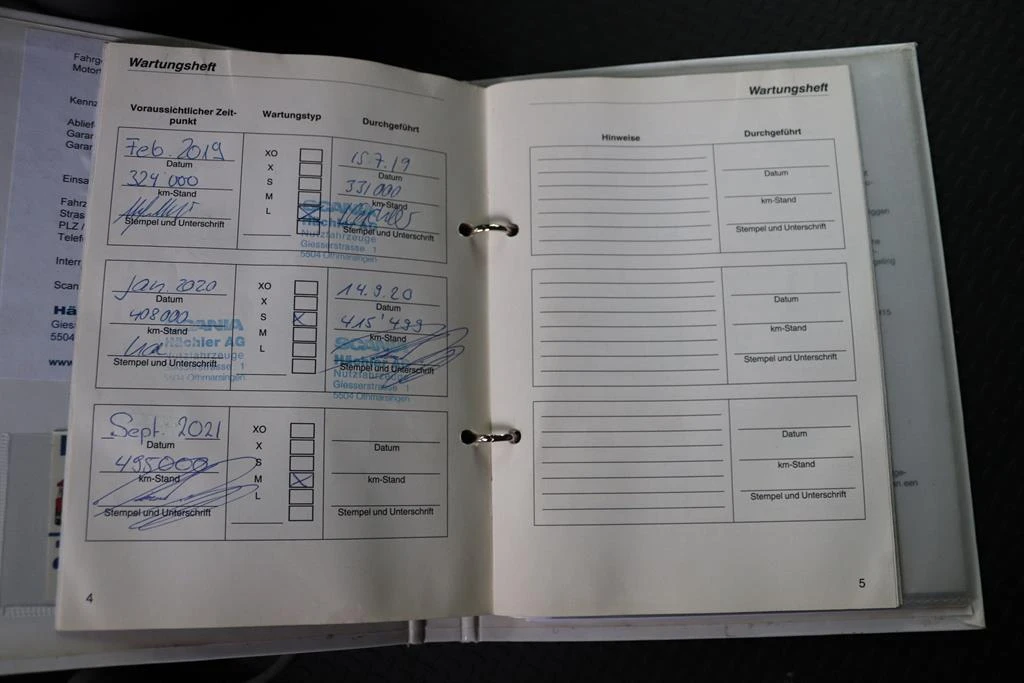 Wartungsheft
Voraussichtlicher Zeit-
punkt
Wartungstyp
Durchgeführt
Feb. 2019
Datum
324 000
km-Stand
Stempel und Unterschrift
XO
X
S
M
L
15.7.19
Datum
331 000
km-Stand
Stempel und Unterschrift
SCANIA
Hächler AG
Nutzfahrzeuge
Giesserstrasse 1
5504 Othmarsingen
Jan. 2020
Datum
408000
km-Stand
Stempel und Unterschrift
SCANIA
Hächler AG
Nutzfahrzeuge
Giesserstrasse 1
5504 Othmarsingen
XO
X
S
M
L
14.9.20
Datum
415'499
km-Stand
Stempel und Unterschrift
SCANIA
Hächler
Nutzfahrzeuge
Giesserstrasse 1
5504 Othmarsingen
Sept. 2021
Datum
495000
km-Stand
Stempel und Unterschrift
XO
X
S
M
L
Datum
km-Stand
Stempel und Unterschrift
4
Wartungsheft
Hinweise
Durchgeführt
Datum
km-Stand
Stempel und Unterschrift
Datum
km-Stand
Stempel und Unterschrift
Datum
km-Stand
Stempel und Unterschrift
5
Fahrg
Motor
Kennz
Ablief
Garan
Garar
Einsa
Fahrz
Stras
PLZ /
Telef
Interr
Scan
Hä
Gies
5504
www